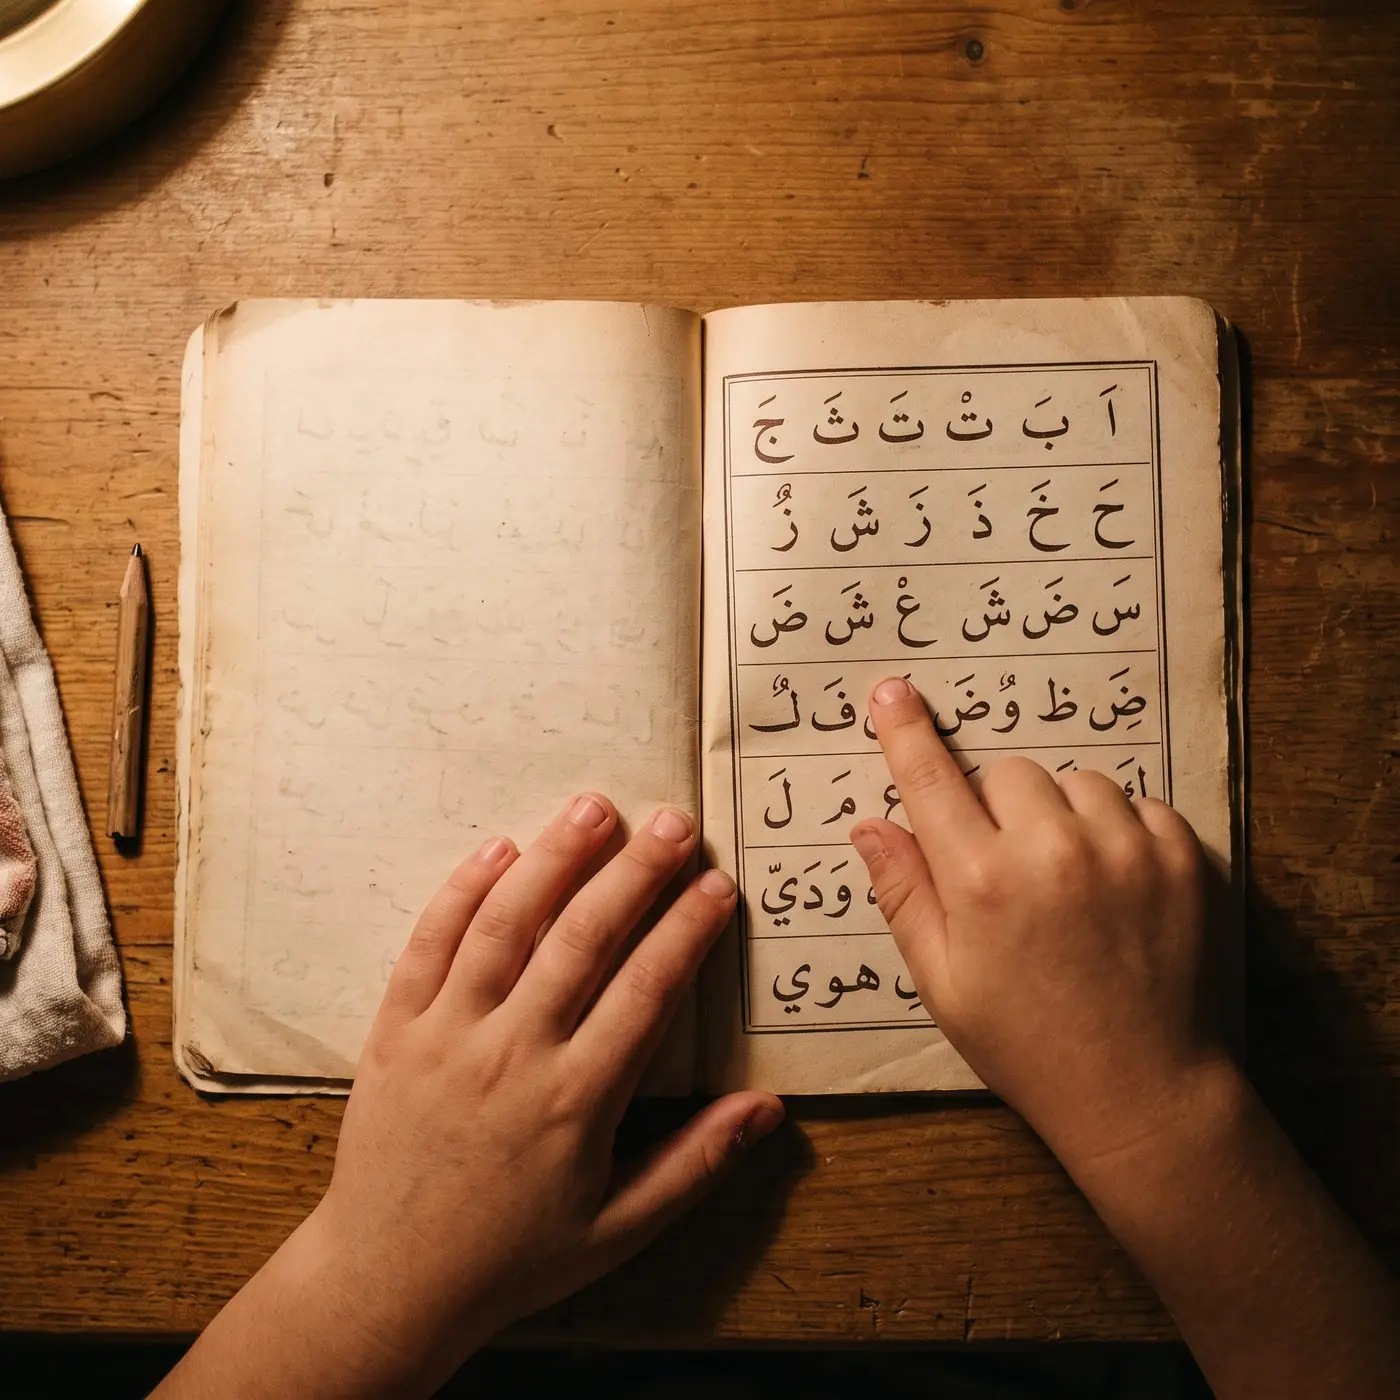 اَ بَ تْ تَ ثَ جَ
حَ خَ ذَ زَ شَ زٌ
سَ ضَ شَ غْ شَ ضَ
ضِ ظ وٌ ضَ فَ لٌ
كَ مَ لَ
وَدَيّ
هوي